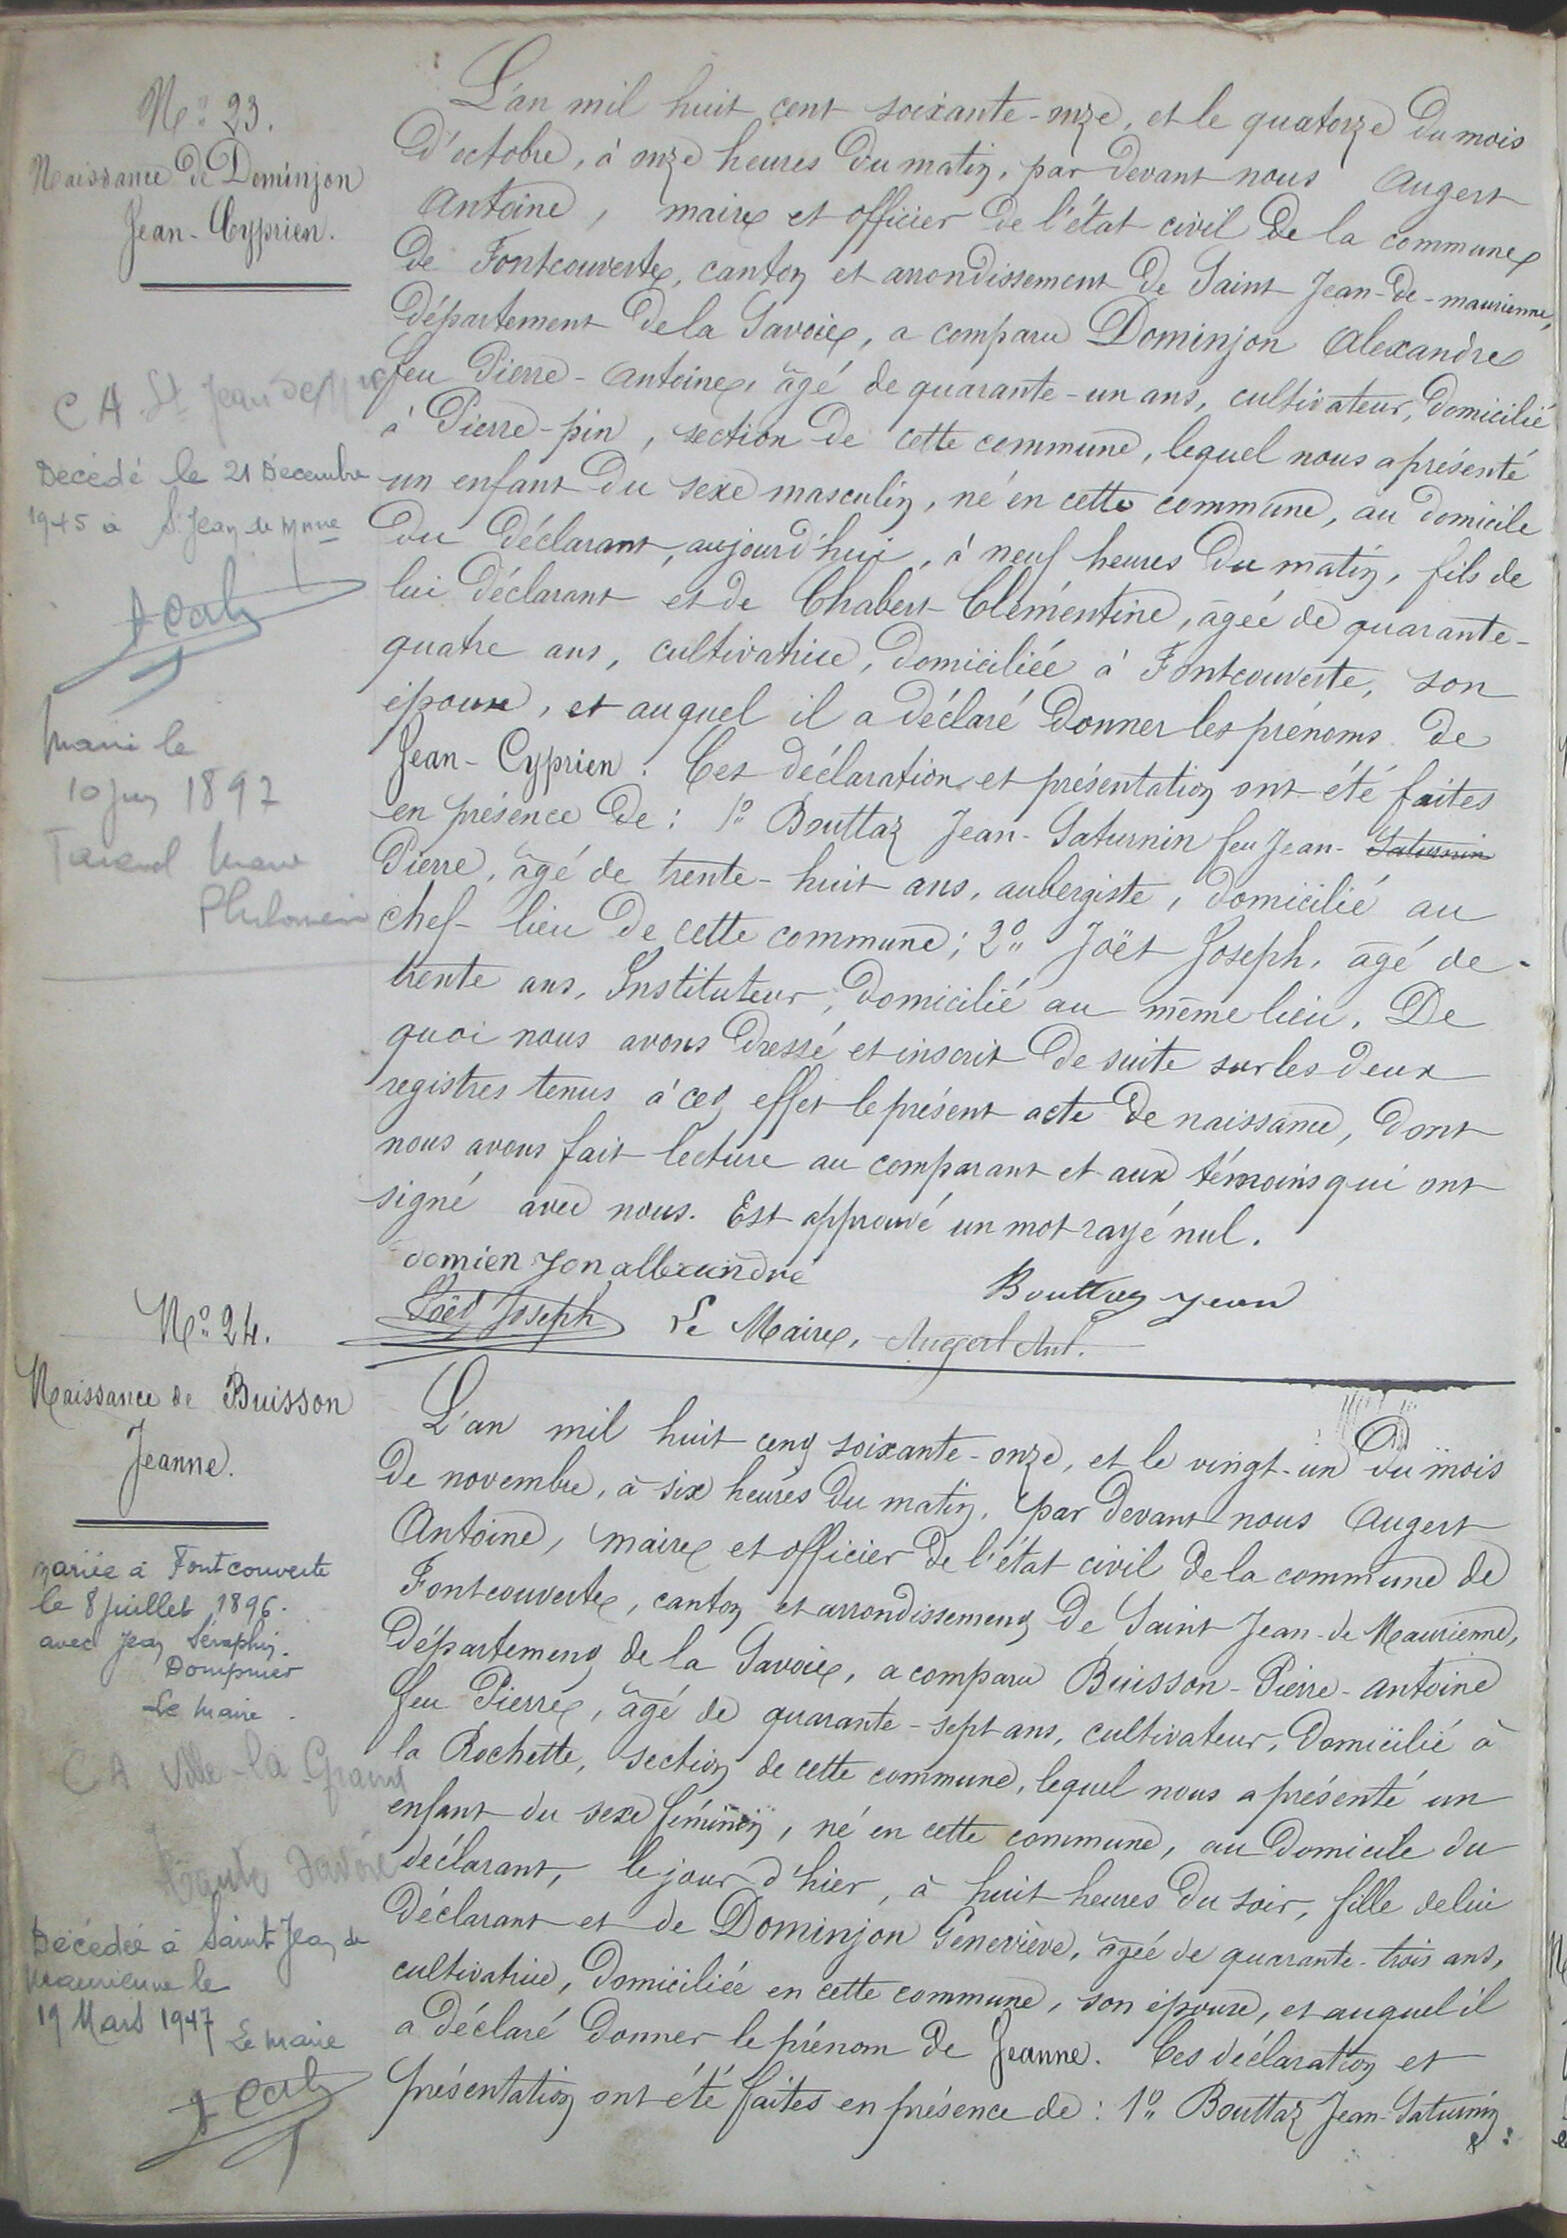 N.o 23.
Naissance de Dominjon
Jean-Cyprien.
C A St Jean de
Décédé le 21 Décembre
1945 à St Jean de Mnne
Marié le
10 Juin 1897
L'an mil huit cent soixante-onze, et le quatorze du mois
d'octobre, à onze heures du matin, par devant nous Augert
Antoine, maire et officier de l'état civil de la commune
de Fontcouverte, canton et arrondissement de Saint-Jean-de-maurienne,
département de la Savoie, a comparu Dominjon Alexandre
feu Pierre-Antoine, âgé de quarante-un ans, cultivateur, domicilié
à Pierre-pin, section de cette commune, lequel nous a présenté
un enfant du sexe masculin, né en cette commune, au domicile
du déclarant, aujourd'hui, à neuf heures du matin, fils de
lui déclarant et de Chabert Clémentine, âgée de quarante-
quatre ans, cultivatrice, domiciliée à Fontcouverte, son
épouse, et auquel il a déclaré donner les prénoms de
Jean-Cyprien. Ces déclaration et présentation ont été faites
en présence de : 1o Bouttaz Jean-Saturnin feu Jean-Saturnin
Pierre, âgé de trente-huit ans, aubergiste, domicilié au
chef-lieu de cette commune; 2o Joët Joseph, âgé de
trente ans, Instituteur, domicilié au même lieu. De
quoi nous avons dressé et inscrit de suite sur les deux
registres tenus à cet effet le présent acte de naissance, dont
nous avons fait lecture au comparant et aux témoins qui ont
signé avec nous. Est approuvé un mot rayé nul.
domien jon allexandre
Bouttaz jean
Joët Joseph Le Maire, Augert Ant.
N.o 24.
Naissance de Buisson
Jeanne.
mariée à Fontcouverte
le 8 juillet 1896.
avec Jean Séraphin
Dompnier
Le Maire.
C A Ville-la-Grand
Haute Savoie
Décédée à Saint Jean de
Maurienne le
19 Mars 1947 Le Maire
L'an mil huit cent soixante-onze, et le vingt-un du mois
de novembre, à six heures du matin, par devant nous Augert
Antoine, maire et officier de l'état civil de la commune de
Fontcouverte, canton et arrondissement de Saint-Jean-de Maurienne,
département de la Savoie, a comparu Buisson-Pierre-antoine
feu Pierre, âgé de quarante-sept ans, cultivateur, domicilié à
la Rochette, section de cette commune, lequel nous a présenté un
enfant du sexe féminin, né en cette commune, au domicile du
déclarant, le jour d'hier, à huit heures du soir, fille de lui
déclarant et de Dominjon Geneviève, âgée de quarante-trois ans,
cultivatrice, domiciliée en cette commune, son épouse, et auquel il
a déclaré donner le prénom de Jeanne. Ces déclaration et
présentation ont été faites en présence de : 1o Bouttaz Jean-Saturnin